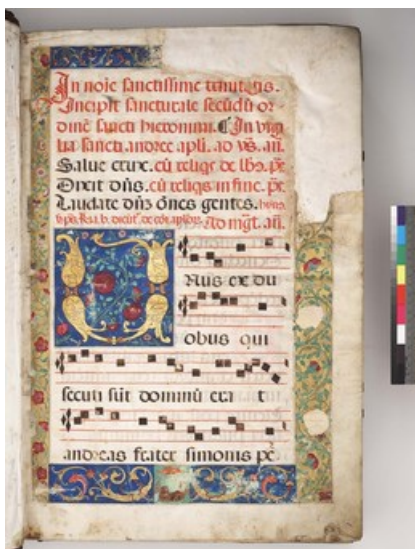 In noie sanctissime trinitatis.
Incipit sanctorale secūdū or-
dinē sancti hieronimi. In vigi
lia sancti andree apli. ad vs̄. an̄.
Salue crux. cū reliqs de lbō. ps̄
Dixit dn̄s. cū reliqs in fine. ps̄
Laudate dn̄m ōnes gentes.
Ad mgt̄. an̄.
Unus ex du
obus qui
secuti sūt dominū era t
andreas frater simonis pe